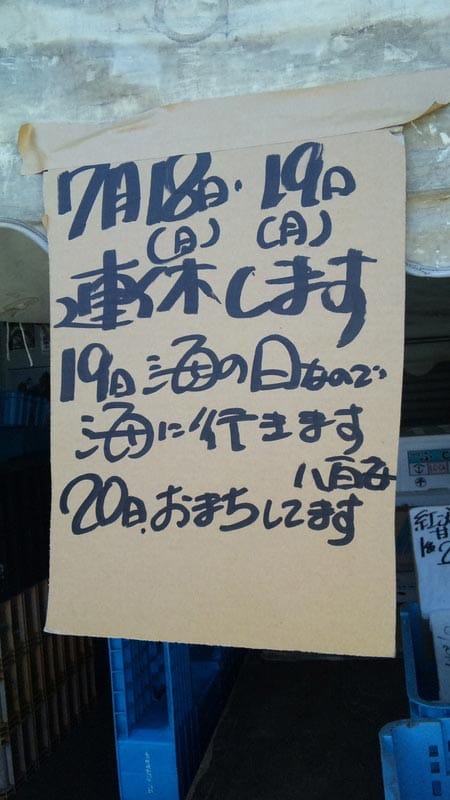 7月18日・19日
(月) (月)
連休します
19日海の日なので
海に行きます
八百辰
20日.おまちしてます